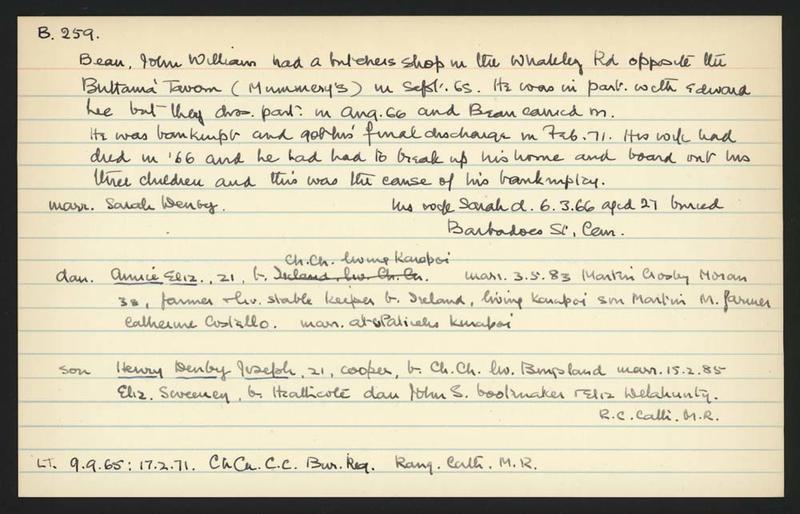 B. 259.
Bean, John William had a butchers shop in the Whateley Rd opposite the
Brittania Tavern (Mummery's) in Sept. 65. He was in part. with Edward
Lee but they diss. part. in Aug. 66 and Bean carried on.
He was bankrupt and got his final discharge in Feb. 71. His wife had
died in '66 and he had had to break up his home and board out his
three children and this was the cause of his bankruptcy.
marr. Sarah Denby. his wife Sarah d. 6.3.66 aged 27 buried
Barbadoes St. Cem.
Ch.Ch. living Kaiapoi
dau. Annie Eliz., 21, b. Ireland, liv. Ch.Ch. marr. 3.5.83 Martin Crosby Moran
32, farmer & liv. stable keeper b. Ireland, living Kaiapoi son Martin M. farmer
Catherine Costello. marr. at St Patricks Kaiapoi
son Henry Denby Joseph, 21, cooper, b. Ch.Ch. liv. marr. 15.2.85
Eliz. Sweeney, b. Heathcote dau John S. bootmaker & Eliz Delahunty.
R.C. Cath. M.R.
LT. 9.9.65: 17.2.71. ChCh. C.C. Bur. Reg. Rang. Cath. M.R.